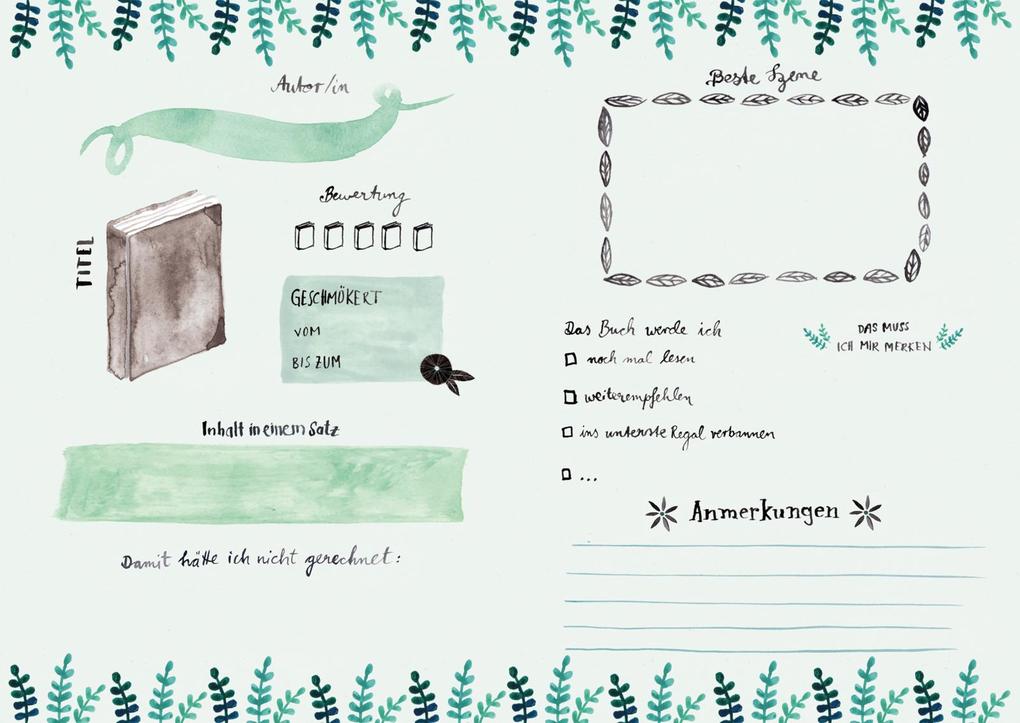 Autor/in
TITEL
Bewertung
GESCHMÖKERT
VOM
BIS ZUM
Inhalt in einem Satz
Damit hätte ich nicht gerechnet:
Beste Szene
Das Buch werde ich
noch mal lesen
weiterempfehlen
ins unterste Regal verbannen
...
DAS MUSS
ICH MIR MERKEN
Anmerkungen